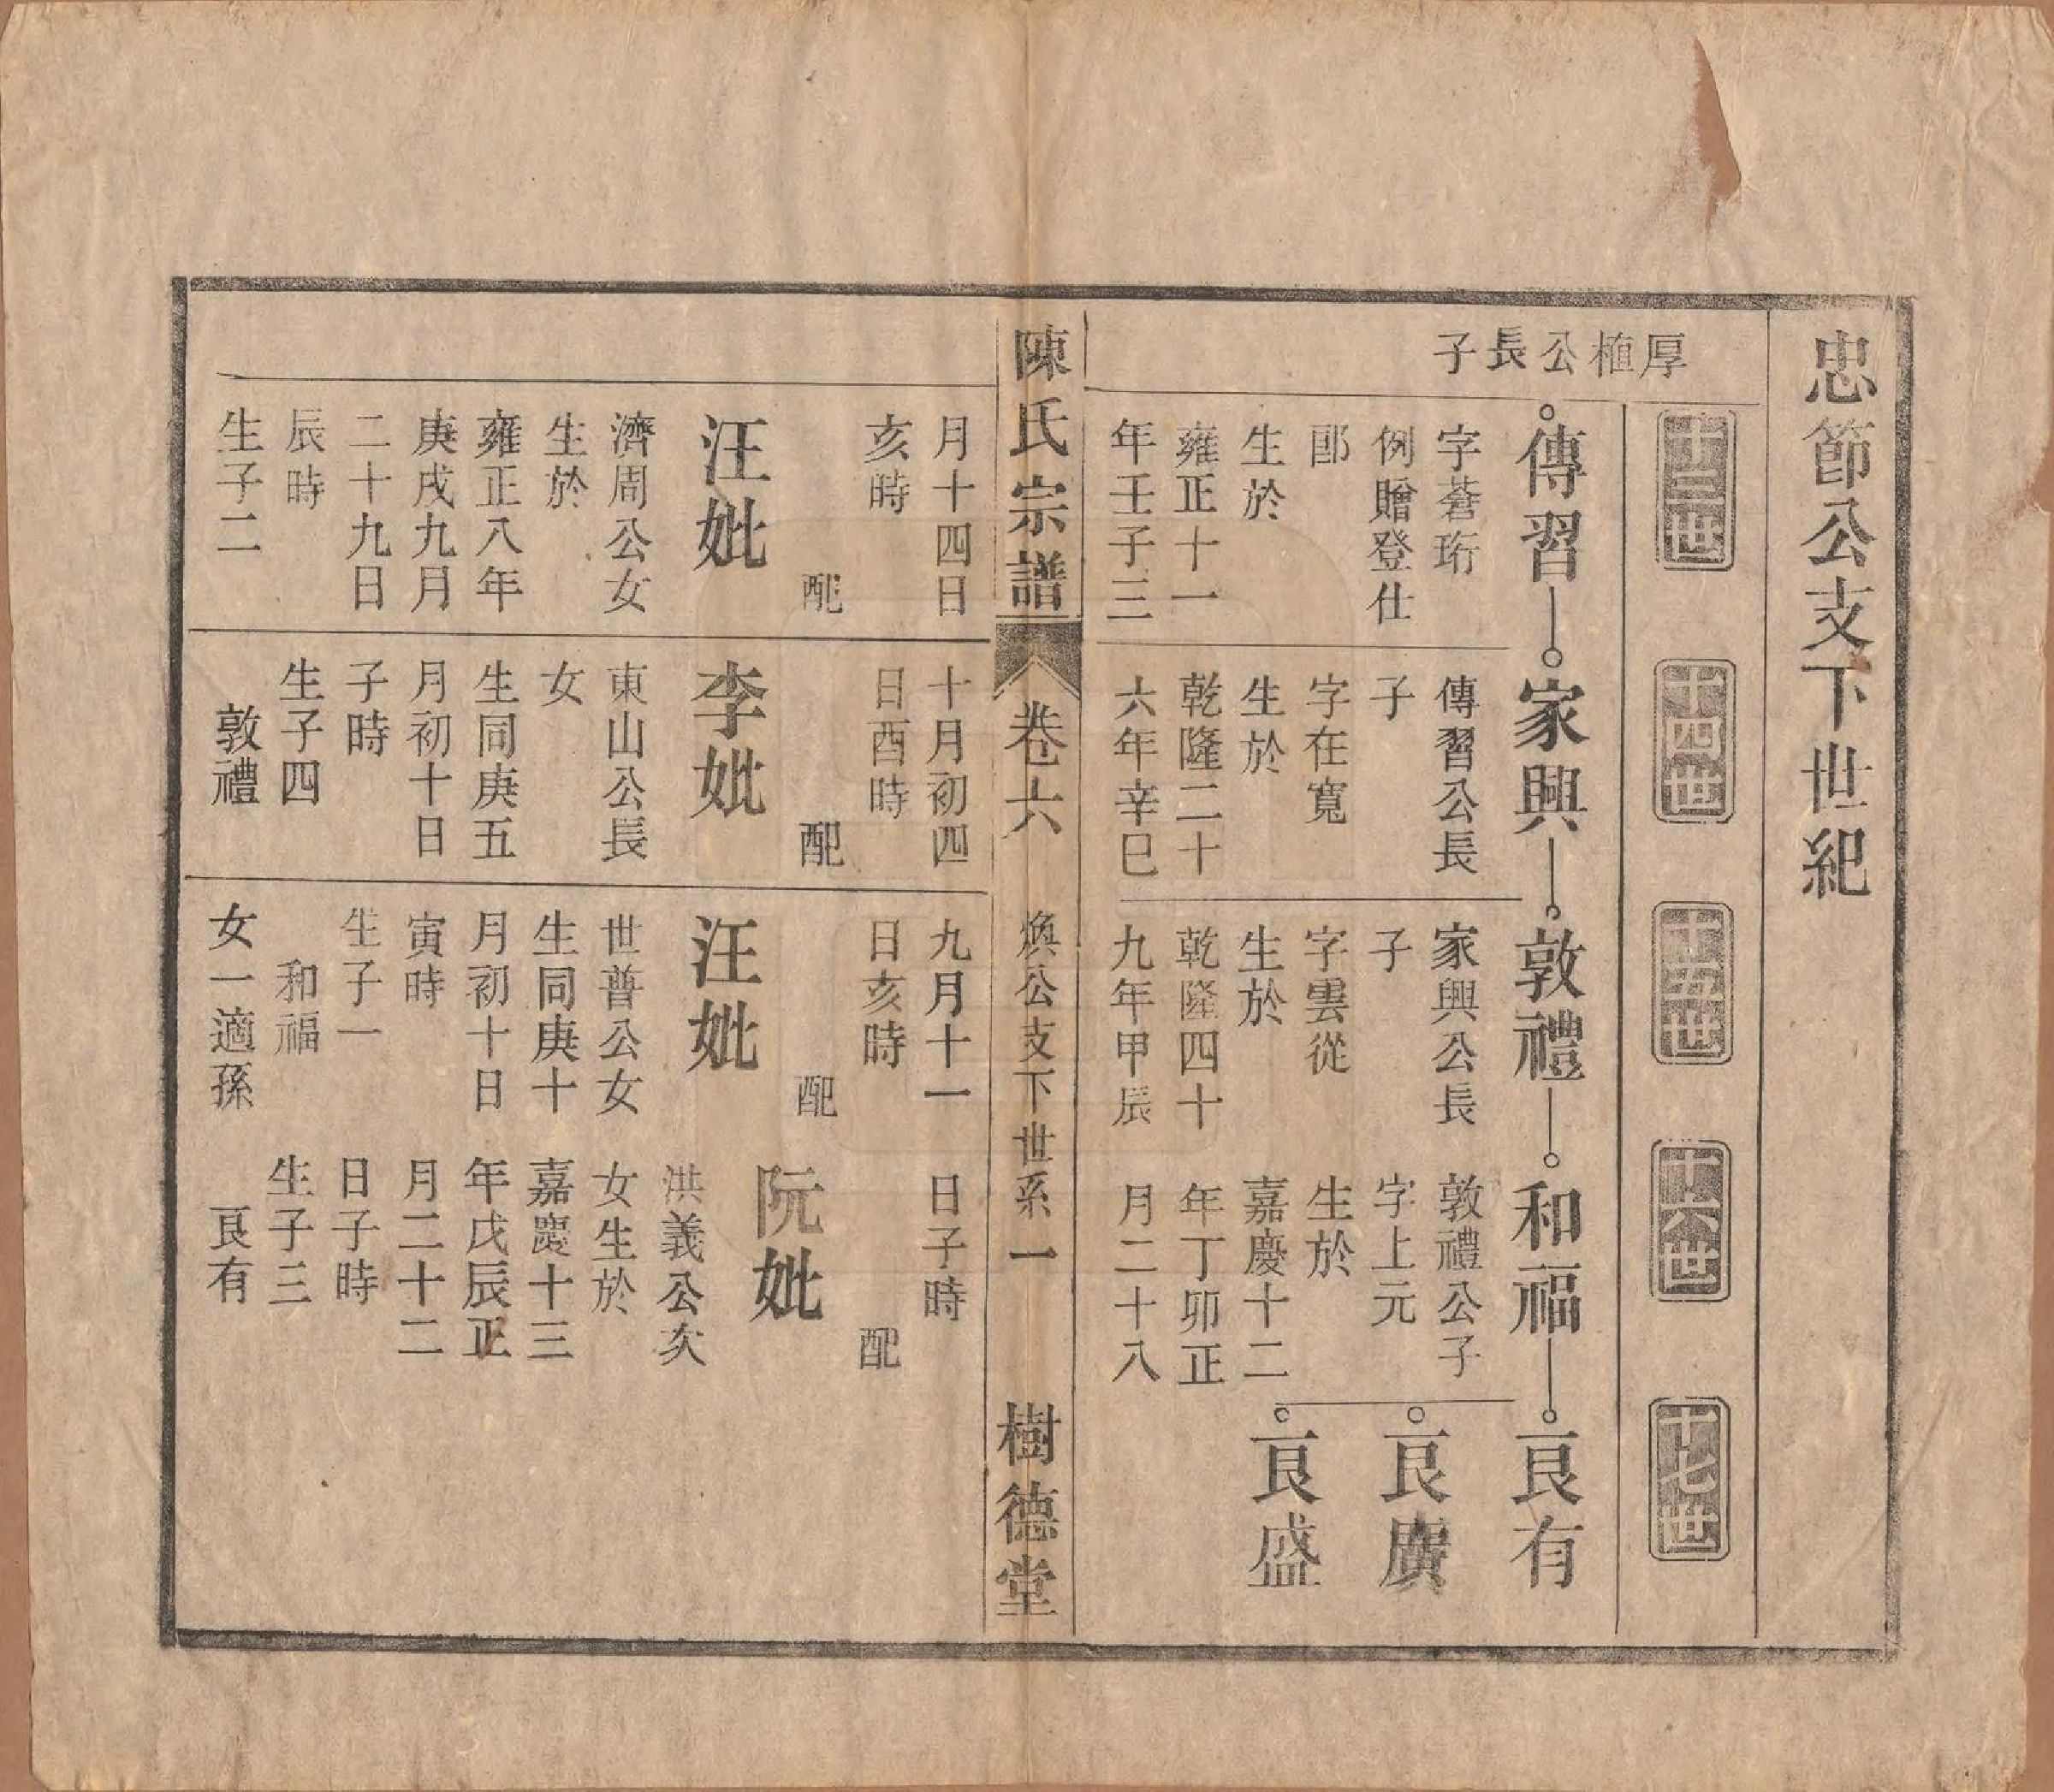 忠節公支下世紀
十三世
十四世
十五世
十六世
十七世
厚植公長子
傳習
字蒼珩
例贈登仕
郎
生於
雍正十一
年壬子三
家興
傳習公長
子
字在寬
生於
乾隆二十
六年辛巳
敦禮
家興公長
子
字雲從
生於
乾隆四十
九年甲辰
和福
敦禮公子
字上元
生於
嘉慶十二
年丁卯正
月二十八
良有
良廣
良盛
陳氏宗譜
卷六
煥公支下世系一
樹德堂
月十四日
亥時
配
汪妣
濟周公女
生於
雍正八年
庚戌九月
二十九日
辰時
生子二
十月初四
日酉時
配
李妣
東山公長
女
生同庚五
月初十日
子時
生子四
敦禮
九月十一
日亥時
配
汪妣
世普公女
生同庚十
月初十日
寅時
生子一
和福
女一適孫
日子時
配
阮妣
洪義公次
女生於
嘉慶十三
年戊辰正
月二十二
日子時
生子三
良有